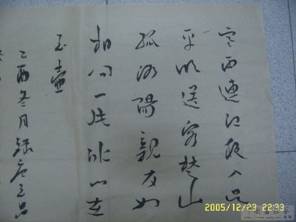 寒雨連江夜入吴
平明送客楚山
孤洛陽親友如
相問一片冰心在
玉壺
乙酉冬月
2005/12/23 22:33